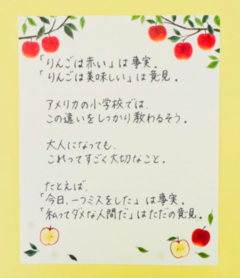 「りんごは赤い」は事実。
「りんごは美味しい」は意見。
アメリカの小学校では、
この違いをしっかり教わるそう。
大人になっても、
これってすごく大切なこと。
たとえば、
「今日、一つミスをした」は事実。
「私ってダメな人間だ」はただの意見。